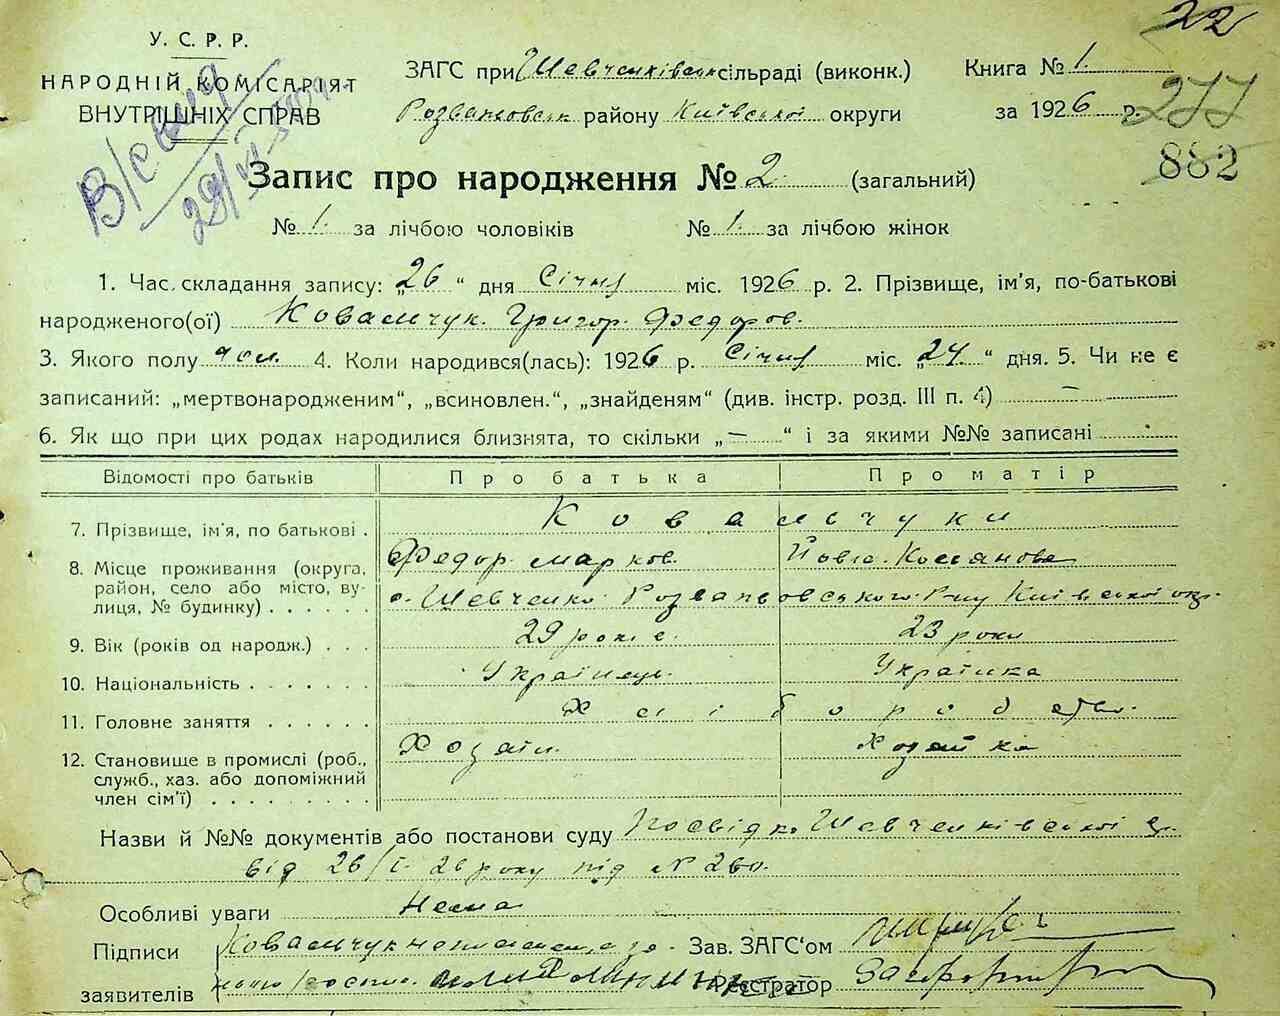 22
У. С. Р. Р.
НАРОДНІЙ КОМІСАРІЯТ
ВНУТРІШНІХ СПРАВ
ЗАГС при Шевченківськ сільраді (виконк.) Книга № 1.
Розважовськ району Київської округи за 1926 р. 277
882
Запис про народження № 2 (загальний)
№ 1. за лічбою чоловіків № 1. за лічбою жінок
1. Час складання запису: „26“ дня Січня міс. 1926 р. 2. Прізвище, ім'я, по-батькові
народженого(ої) Ковальчук Григор. Федоров.
3. Якого полу чол. 4. Коли народився(лась): 1926 р. Січня міс. „24“ дня. 5. Чи не є
записаний: „мертвонародженим“, „всиновлен.“, „знайденям“ (див. інстр. розд. III п. 4) —
6. Як що при цих родах народилися близнята, то скільки „—“ і за якими №№ записані
Відомості про батьків Про батька Про матір
7. Прізвище, ім'я, по батькові . Ковальчуки
Федор Марков. Йовга
8. Місце проживання (округа, район, село або місто, вулиця, № будинку) . . . . . . с. Шевченко Розважовського р-ну Київської окр.
9. Вік (років од народж.) . . . 29 років 23 роки
10. Національність . . . . . . . Українець Українка
11. Головне заняття . . . . . . Хліборобство.
12. Становище в промислі (роб., служб., хаз. або допоміжний член сім'ї) . . . . . . . . . Хозаїн. Хозайка
Назви й №№ документів або постанови суду Посвідка Шевченківської
від 26/I 26 року під № 260.
Особливі уваги Нема
Підписи Ковальчук Зав. ЗАГС'ом
заявителів Реєстратор